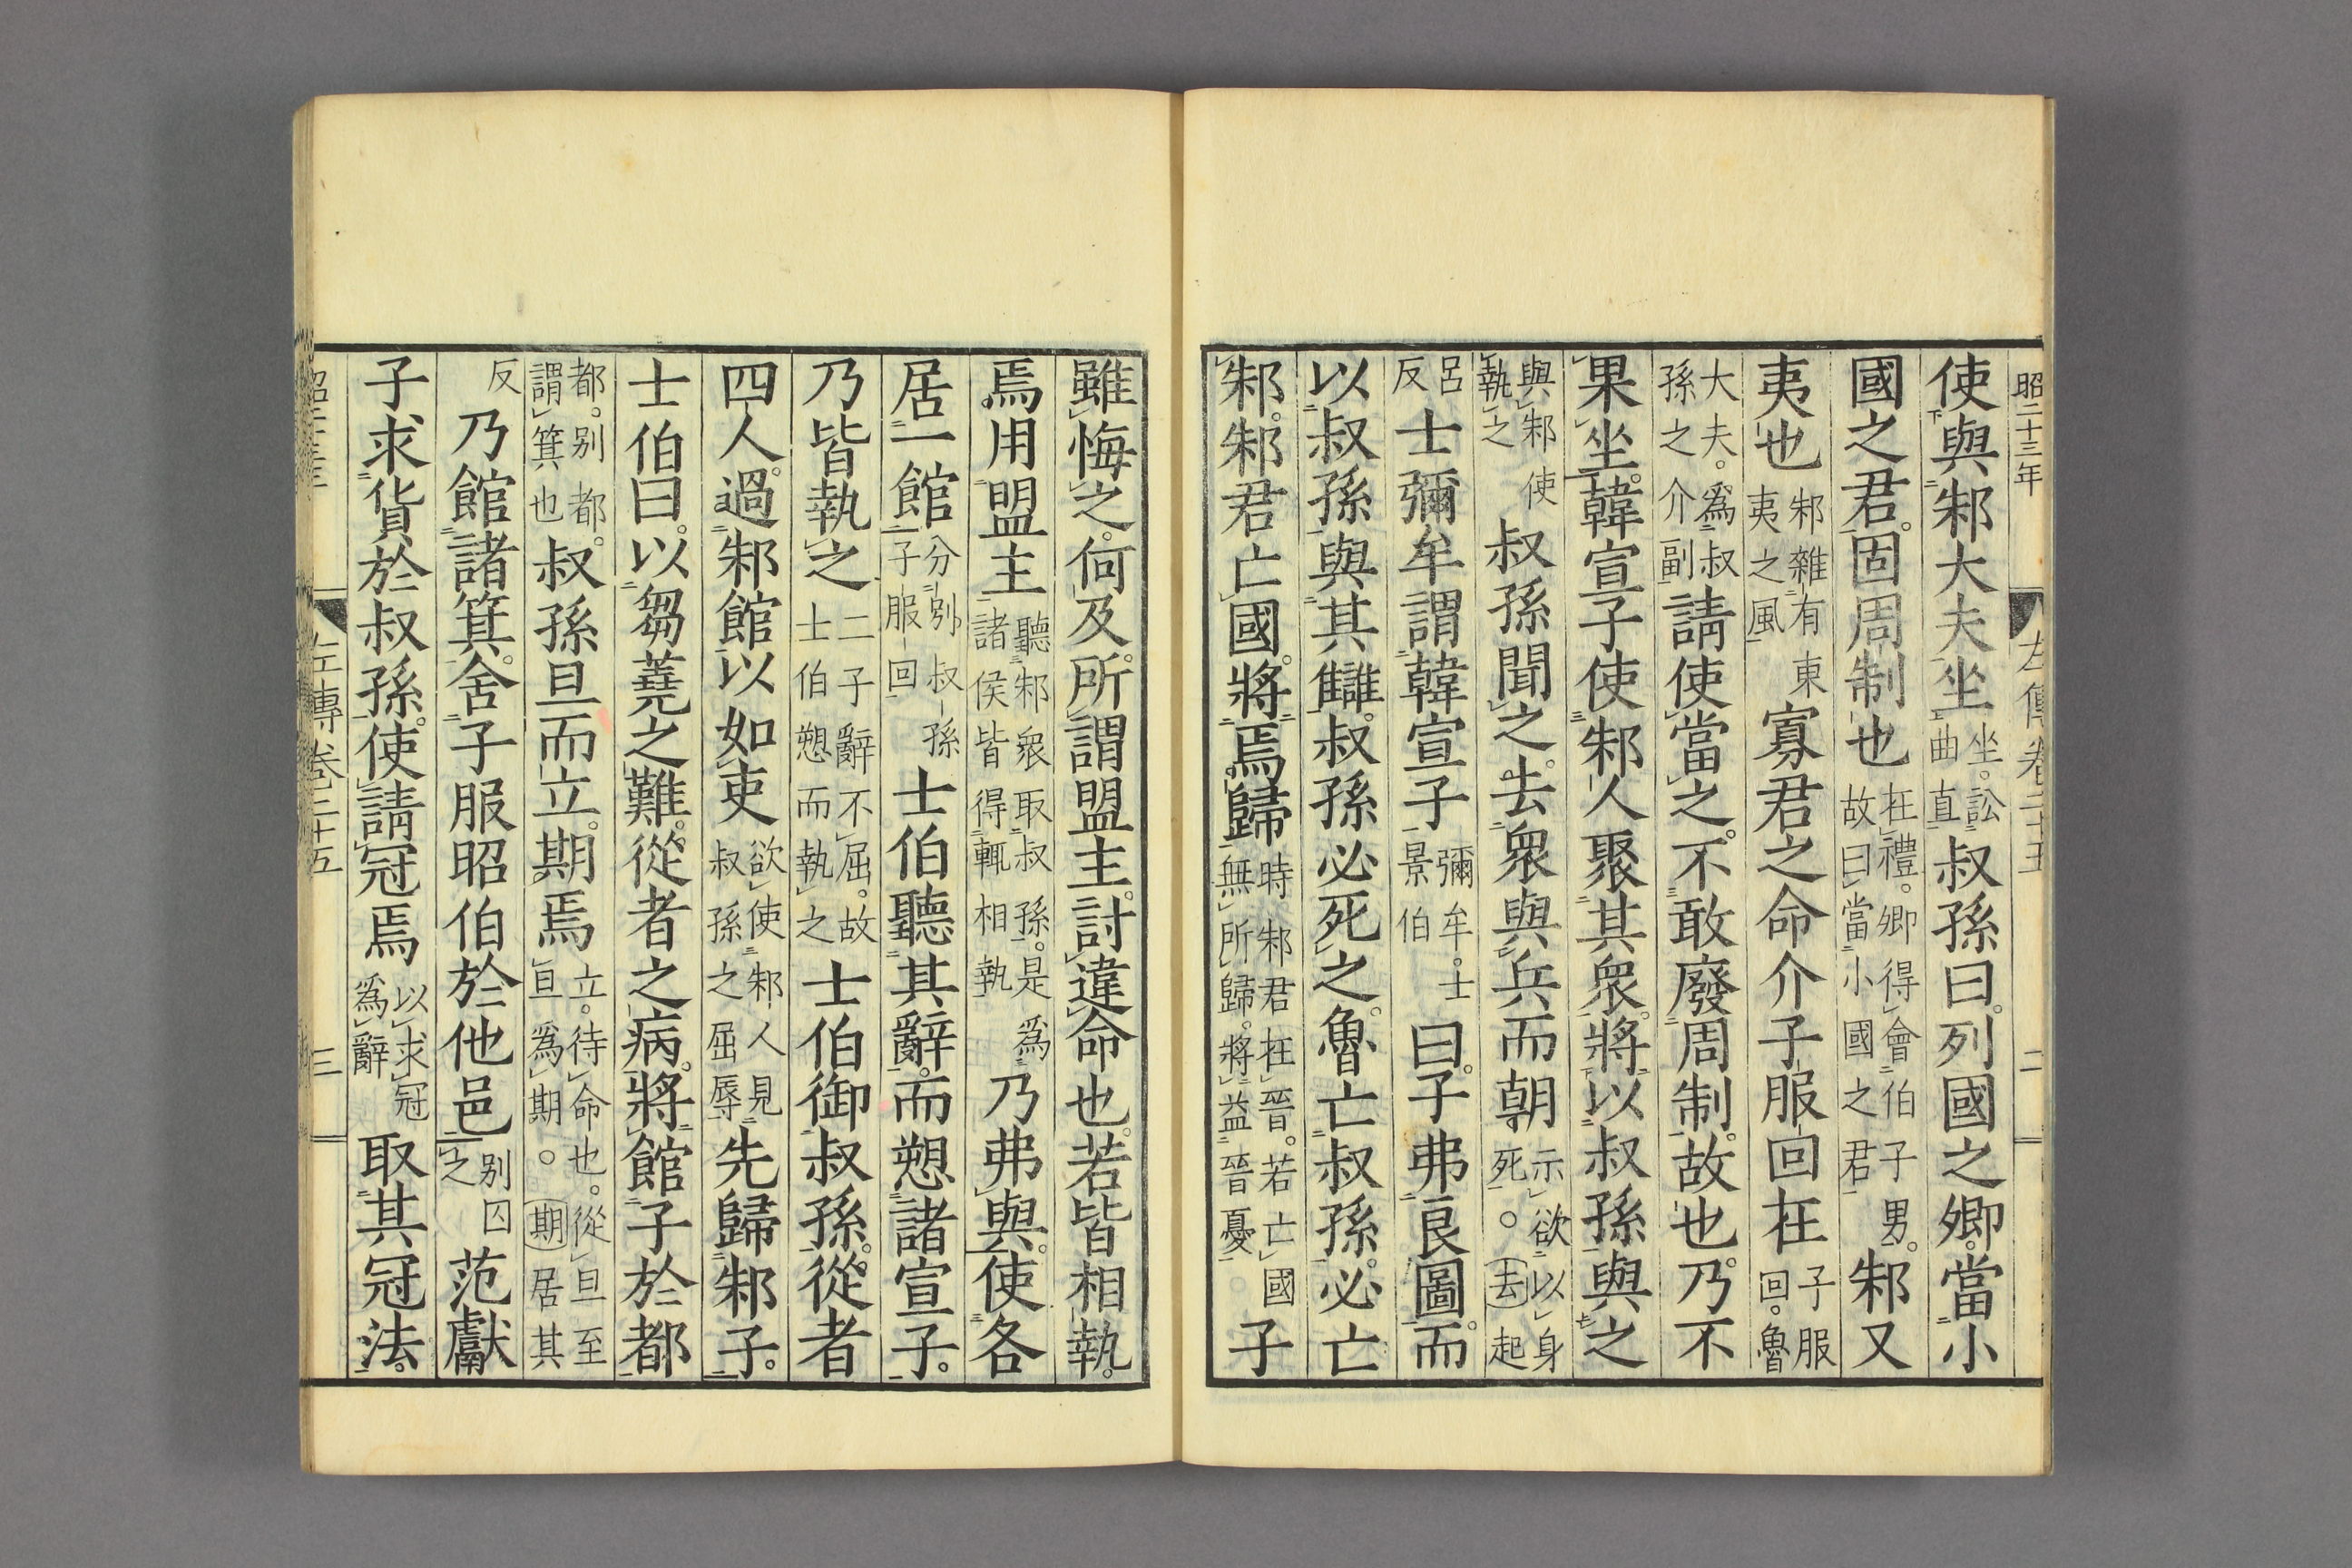 昭二十三年 左傳卷二十五 二
使與邾大夫坐坐。訟曲直叔孫曰。列國之卿。當小
國之君。固周制也在禮。卿得會伯子男。故曰當小國之君邾又
夷也邾雜有東夷之風寡君之命介子服回在子服回。魯
大夫。爲叔孫之介副請使當之。不敢廢周制故也。乃不
果坐。韓宣子使邾人聚其衆。將以叔孫與之
與邾使執之叔孫聞之。去衆與兵而朝示欲以身死。○去起
呂反士彌牟謂韓宣子彌牟。士景伯曰。子弗良圖。而
以叔孫與其讎。叔孫必死之。魯亡叔孫。必亡
邾。邾君亡國。將焉歸。時邾君在晉。若亡國無所歸。將益晉憂。子
雖悔之。何及。所謂盟主。討違命也。若皆相執。
焉用盟主聽邾衆取叔孫。是爲諸侯皆得輒相執乃弗與。使各
居一館分別叔孫子服回士伯聽其辭。而愬諸宣子。
乃皆執之二子辭不屈。故士伯愬而執之士伯御叔孫。從者
四人。過邾館以如吏欲使邾人見叔孫之屈辱先歸邾子。
士伯曰。以芻蕘之難。從者之病。將館子於都
都。別都。謂箕也叔孫旦而立。期焉立。待命也。從旦至旦爲期。○期居其
反乃館諸箕。舍子服昭伯於他邑別囚之范獻
子求貨於叔孫。使請冠焉以求冠爲辭取其冠法。
昭二十三年 左傳卷二十五 三